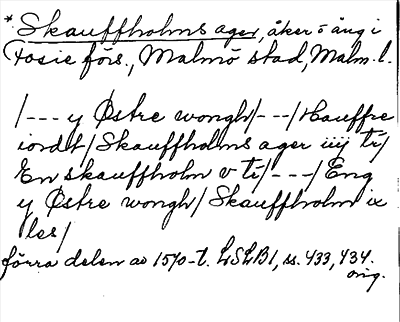 * Skauffholms ager, åker o äng i
Fosie förs., Malmö stad, Malm. l.
/--- y Østre wongh/---/Hauffre
iordt/Skauffholms ager iiij ti/
En skauffholm v ti/---/Eng
y Østre wongh/Skauffholm ix
les/
förra delen av 1570-t. LSLB1, ss. 433, 434.
orig.